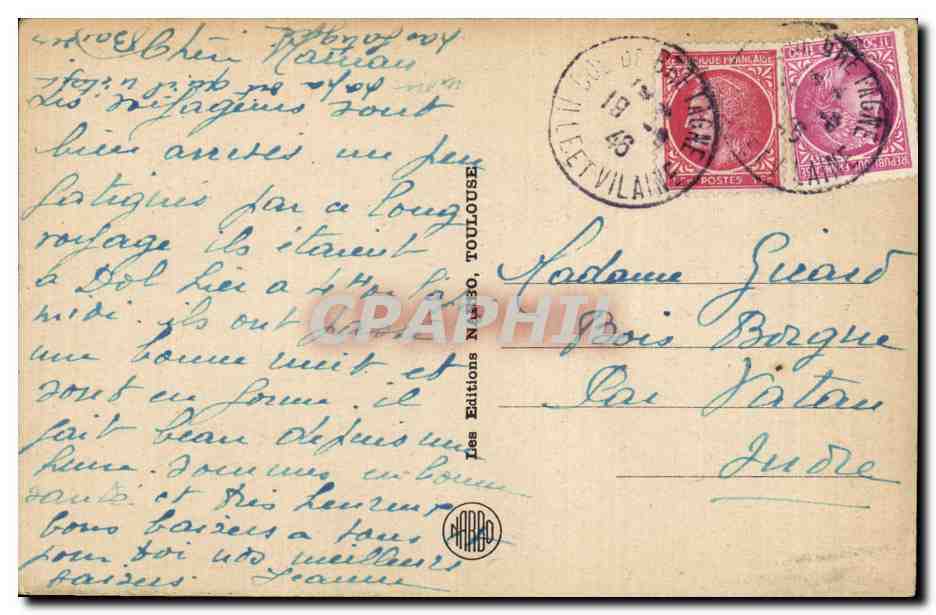 Chère Maman
Les voyageurs sont
bien arrivés un peu
fatigués par ce long
voyage ils étaient
à Dol hier à 4 h
midi. ils ont passé
une bonne nuit et
sont en forme. il
fait beau depuis une
heure. Sommes en bonne
santé et très heureux
bons baisers a tous et
pour toi nos meilleurs
baisers Jeanne
Les Editions NARBO, TOULOUSE
NARBO
DOL DE BRETAGNE
19
46
ILLE ET VILAINE
REPUBLIQUE FRANÇAISE
POSTES
Madame Girard
Bois Borgne
Par Vatan
Indre
CPAPHIL